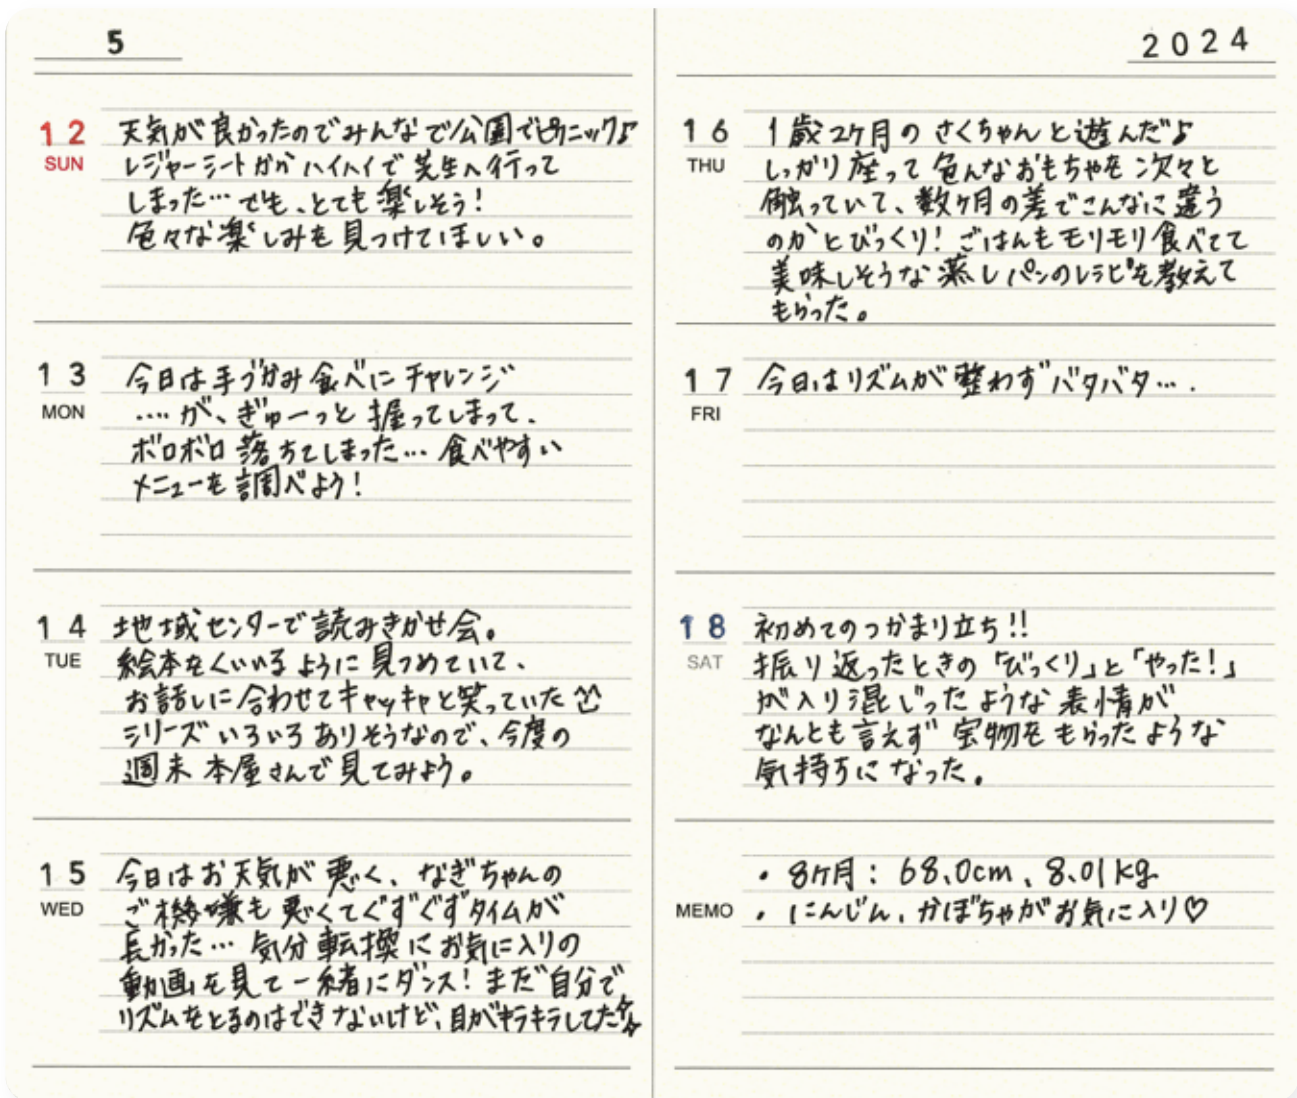 5
2024
12
SUN
天気が良かったのでみんなで公園でピクニック♪
レジャーシートからハイハイで芝生へ行って
しまった…でも、とても楽しそう!
色々な楽しみを見つけてほしい。
13
MON
今日は手づかみ食べにチャレンジ
….が、ぎゅーっと握ってしまって、
ボロボロ落ちてしまった…食べやすい
メニューを調べよう!
14
TUE
地域センターで読みきかせ会。
絵本をくいいるように見つめていて、
お話しに合わせてキャッキャと笑っていた
シリーズいろいろありそうなので、今度の
週末本屋さんで見てみよう。
15
WED
今日はお天気が悪く、なぎちゃんの
ご機嫌も悪くてぐずぐずタイムが
長かった…気分転換にお気に入りの
動画を見て一緒にダンス!まだ自分で
リズムをとるのはできないけど、目がキラキラしてた☆
16
THU
1歳2ヶ月のさくちゃんと遊んだ♪
しっかり座って色んなおもちゃを次々と
触っていて、数ヶ月の差でこんなに違う
のかとびっくり!ごはんもモリモリ食べてて
美味しそうな蒸しパンのレシピを教えて
もらった。
17
FRI
今日はリズムが整わずバタバタ….
18
SAT
初めてのつかまり立ち!!
振り返ったときの「びっくり」と「やった!」
が入り混じったような表情が
なんとも言えず宝物をもらったような
気持ちになった。
MEMO
・8ヶ月:68.0cm、8.01kg
・にんじん、かぼちゃがお気に入り♡